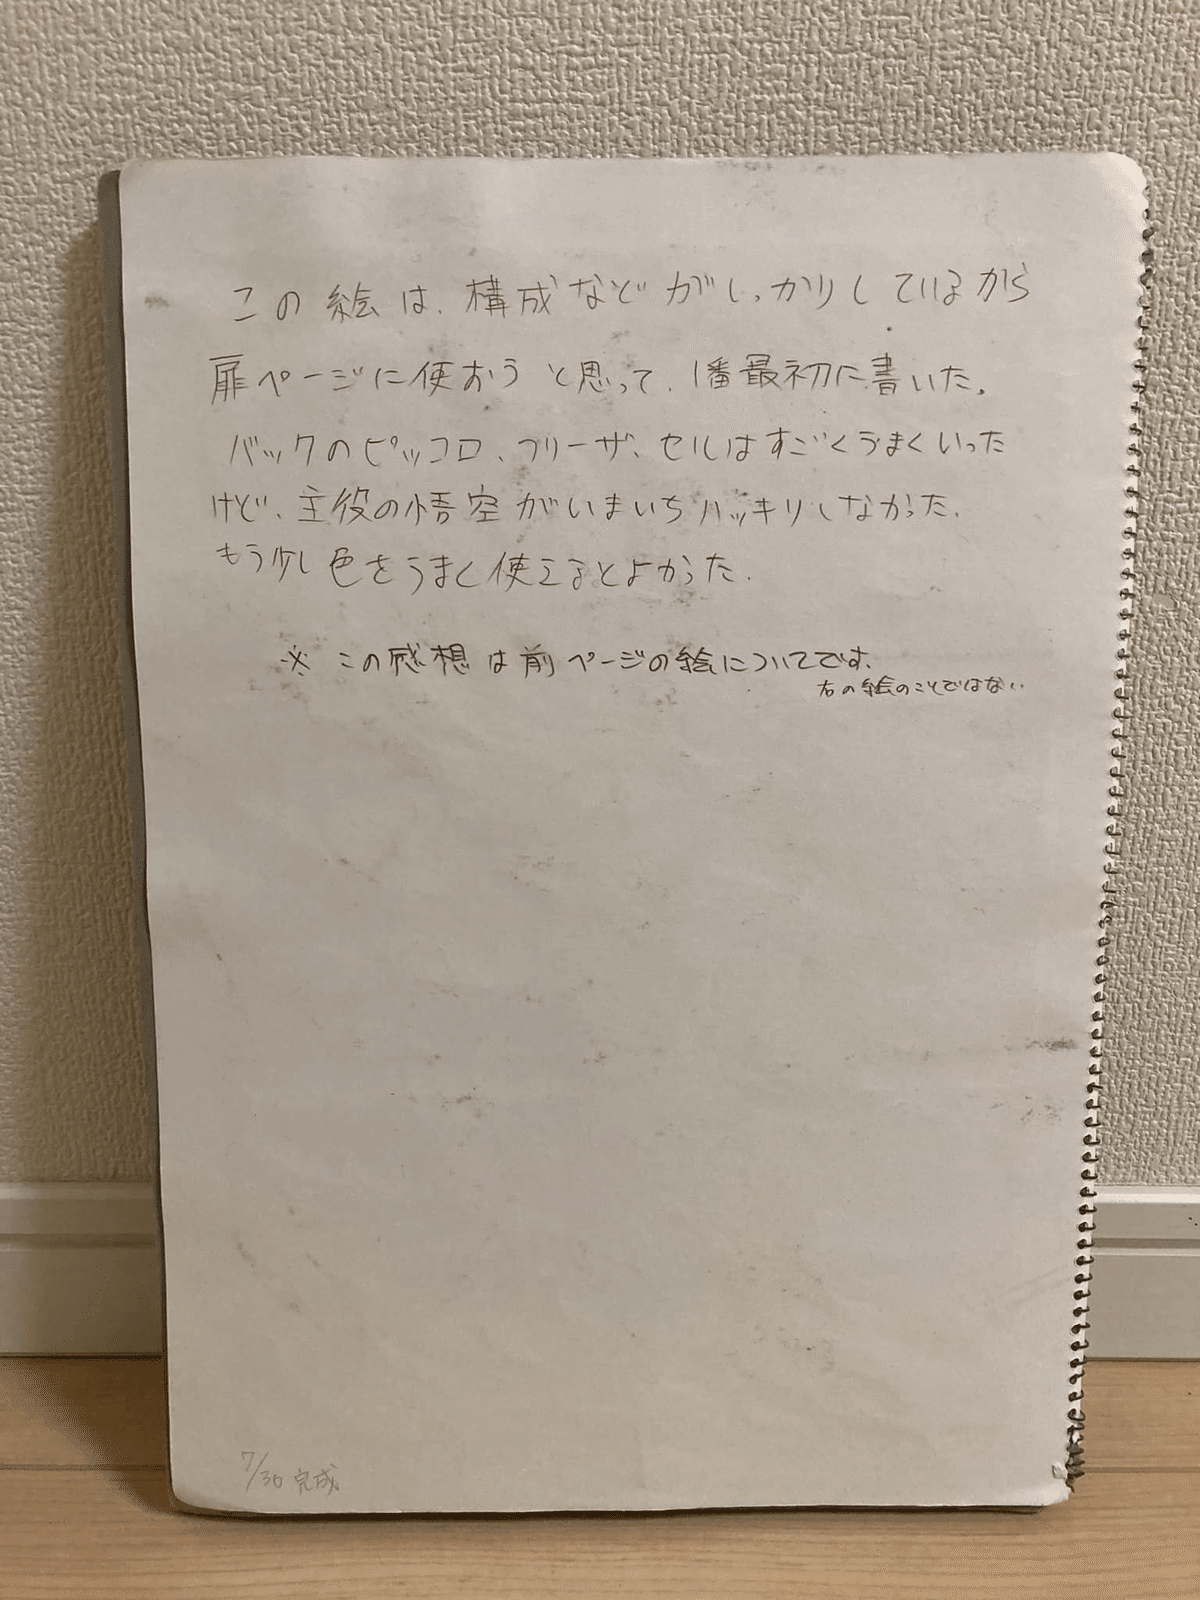 この絵は、構成などがしっかりしているから
扉ページに使おうと思って、1番最初に書いた。
バックのピッコロ、フリーザ、セルはすごくうまくいった
けど、主役の悟空がいまいちハッキリしなかった、
もう少し色をうまく使えるとよかった。
※ この感想は前ページの絵についてです。
右の絵のことではない
7/30 完成